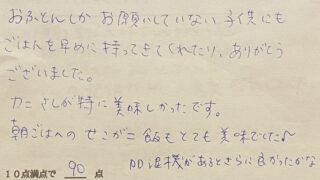 おふとんしか お願いしていない 子供にも
ごはんを早めに持ってきてくれたり、ありがとう
ございました。
カニさしが特に美味しかったです。
朝ごはんのせこがニ飯もとても美味でした♪
加湿機があるとさらに良かったかな
10点満点で 90 点